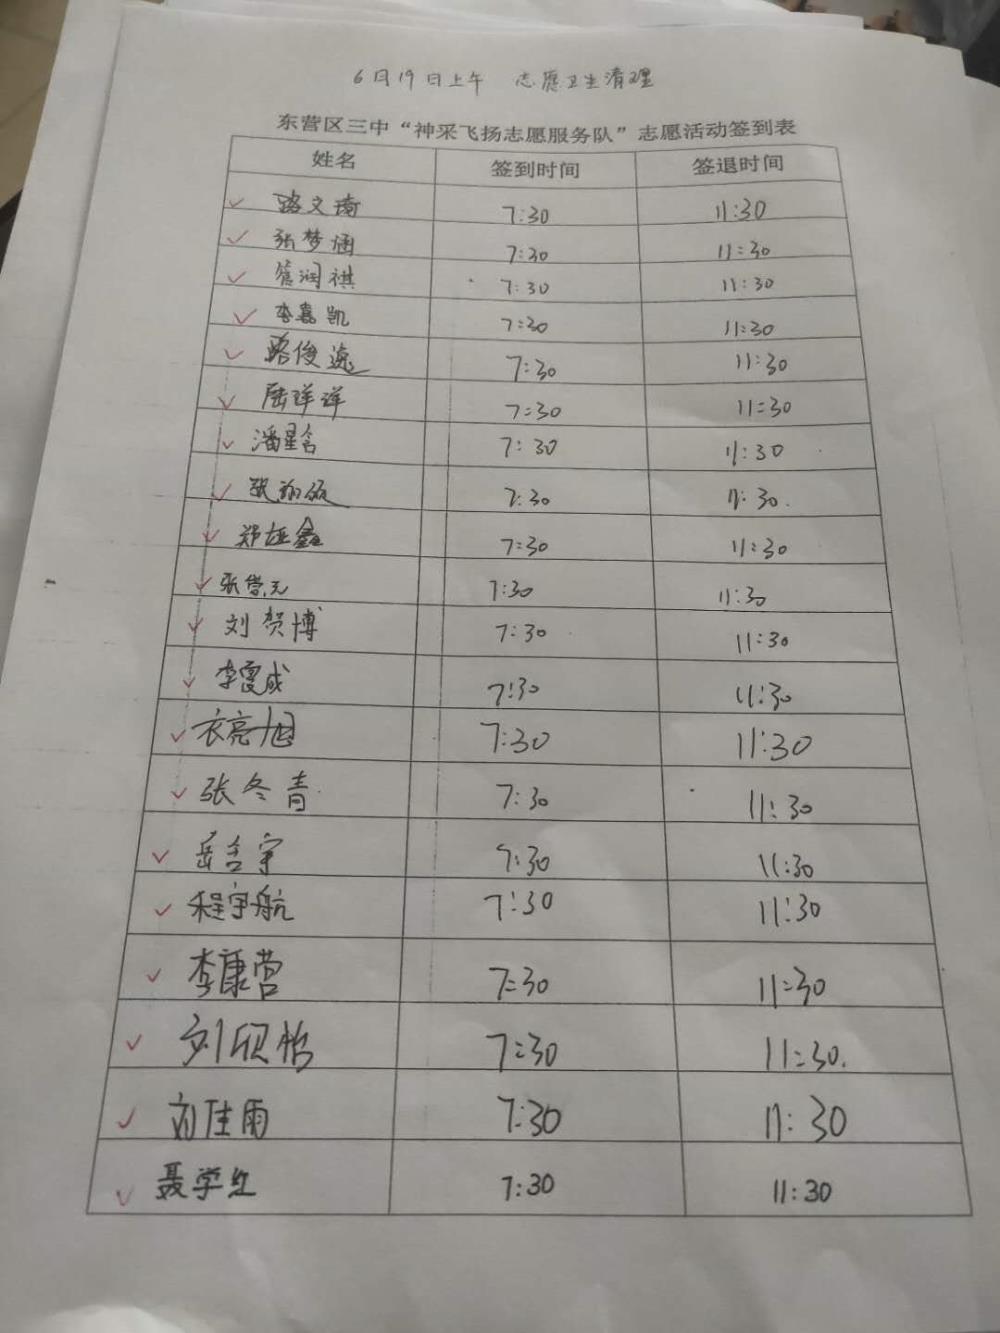 6月19日上午 志愿卫生清理
东营区三中“神采飞扬志愿服务队”志愿活动签到表
姓名 签到时间 签退时间
路文琦 7:30 11:30
张梦涵 7:30 11:30
管润祺 7:30 11:30
李嘉凯 7:30 11:30
路俊逸 7:30 11:30
陆洋洋 7:30 11:30
潘星含 7:30 11:30
张 7:30 11:30.
郑娅鑫 7:30 11:30
张崇元 7:30 11:30
刘贺博 7:30 11:30
李成 7:30 11:30
衣亮旭 7:30 11:30
张冬青 7:30 11:30
岳含宇 7:30 11:30
程宇航 7:30 11:30
李康营 7:30 11:30
刘欣怡 7:30 11:30.
刘佳雨 7:30 11:30
聂学红 7:30 11:30